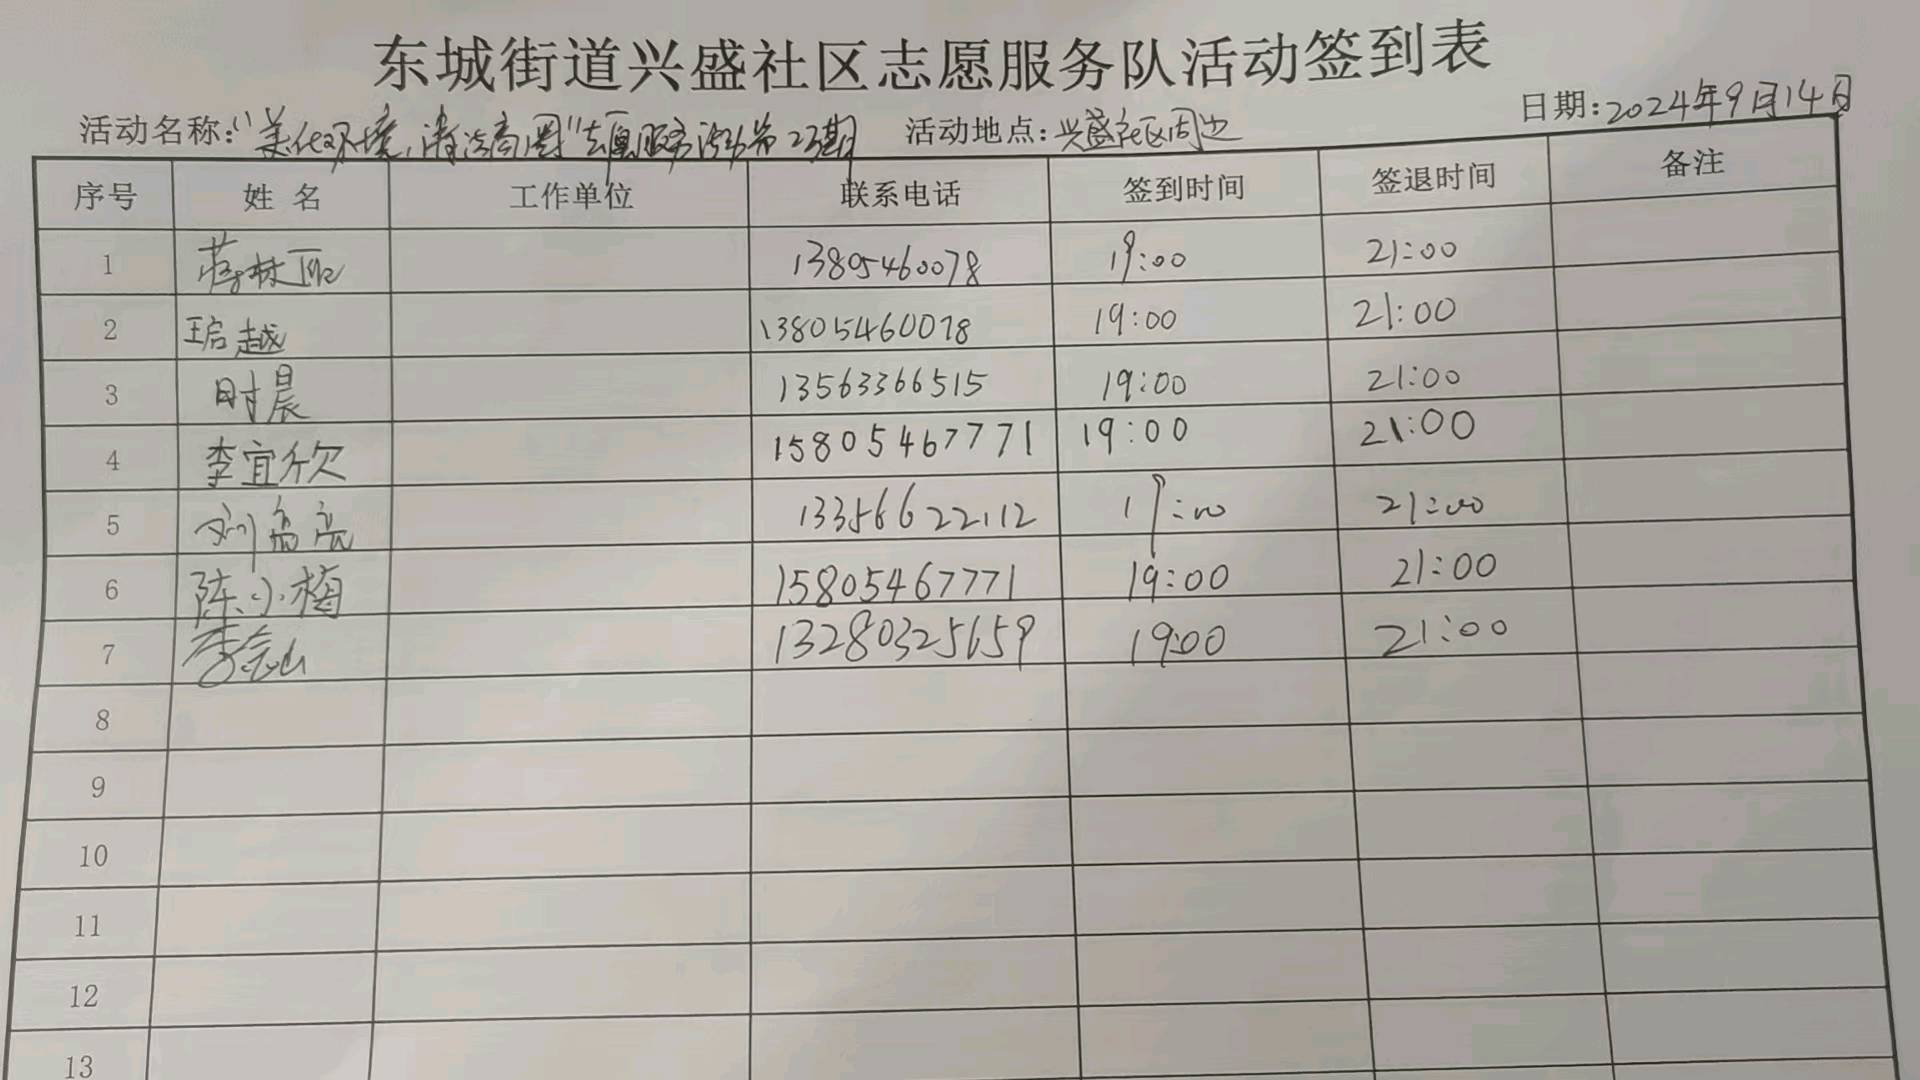 东城街道兴盛社区志愿服务队活动签到表
活动名称:“美化环境,清洁商圈”志愿服务活动第23期 活动地点:兴盛社区周边 日期:2024年9月14日
序号 姓名 工作单位 联系电话 签到时间 签退时间 备注
1 蒋林丽 13805460078 19:00 21:00
2 王启越 13805460078 19:00 21:00
3 时晨 13563366515 19:00 21:00
4 李宜欣 15805467771 19:00 21:00
5 刘高亮 13356622112 19:00 21:00
6 陈小梅 15805467771 19:00 21:00
7 李 山 13280325659 19:00 21:00
8
9
10
11
12
13